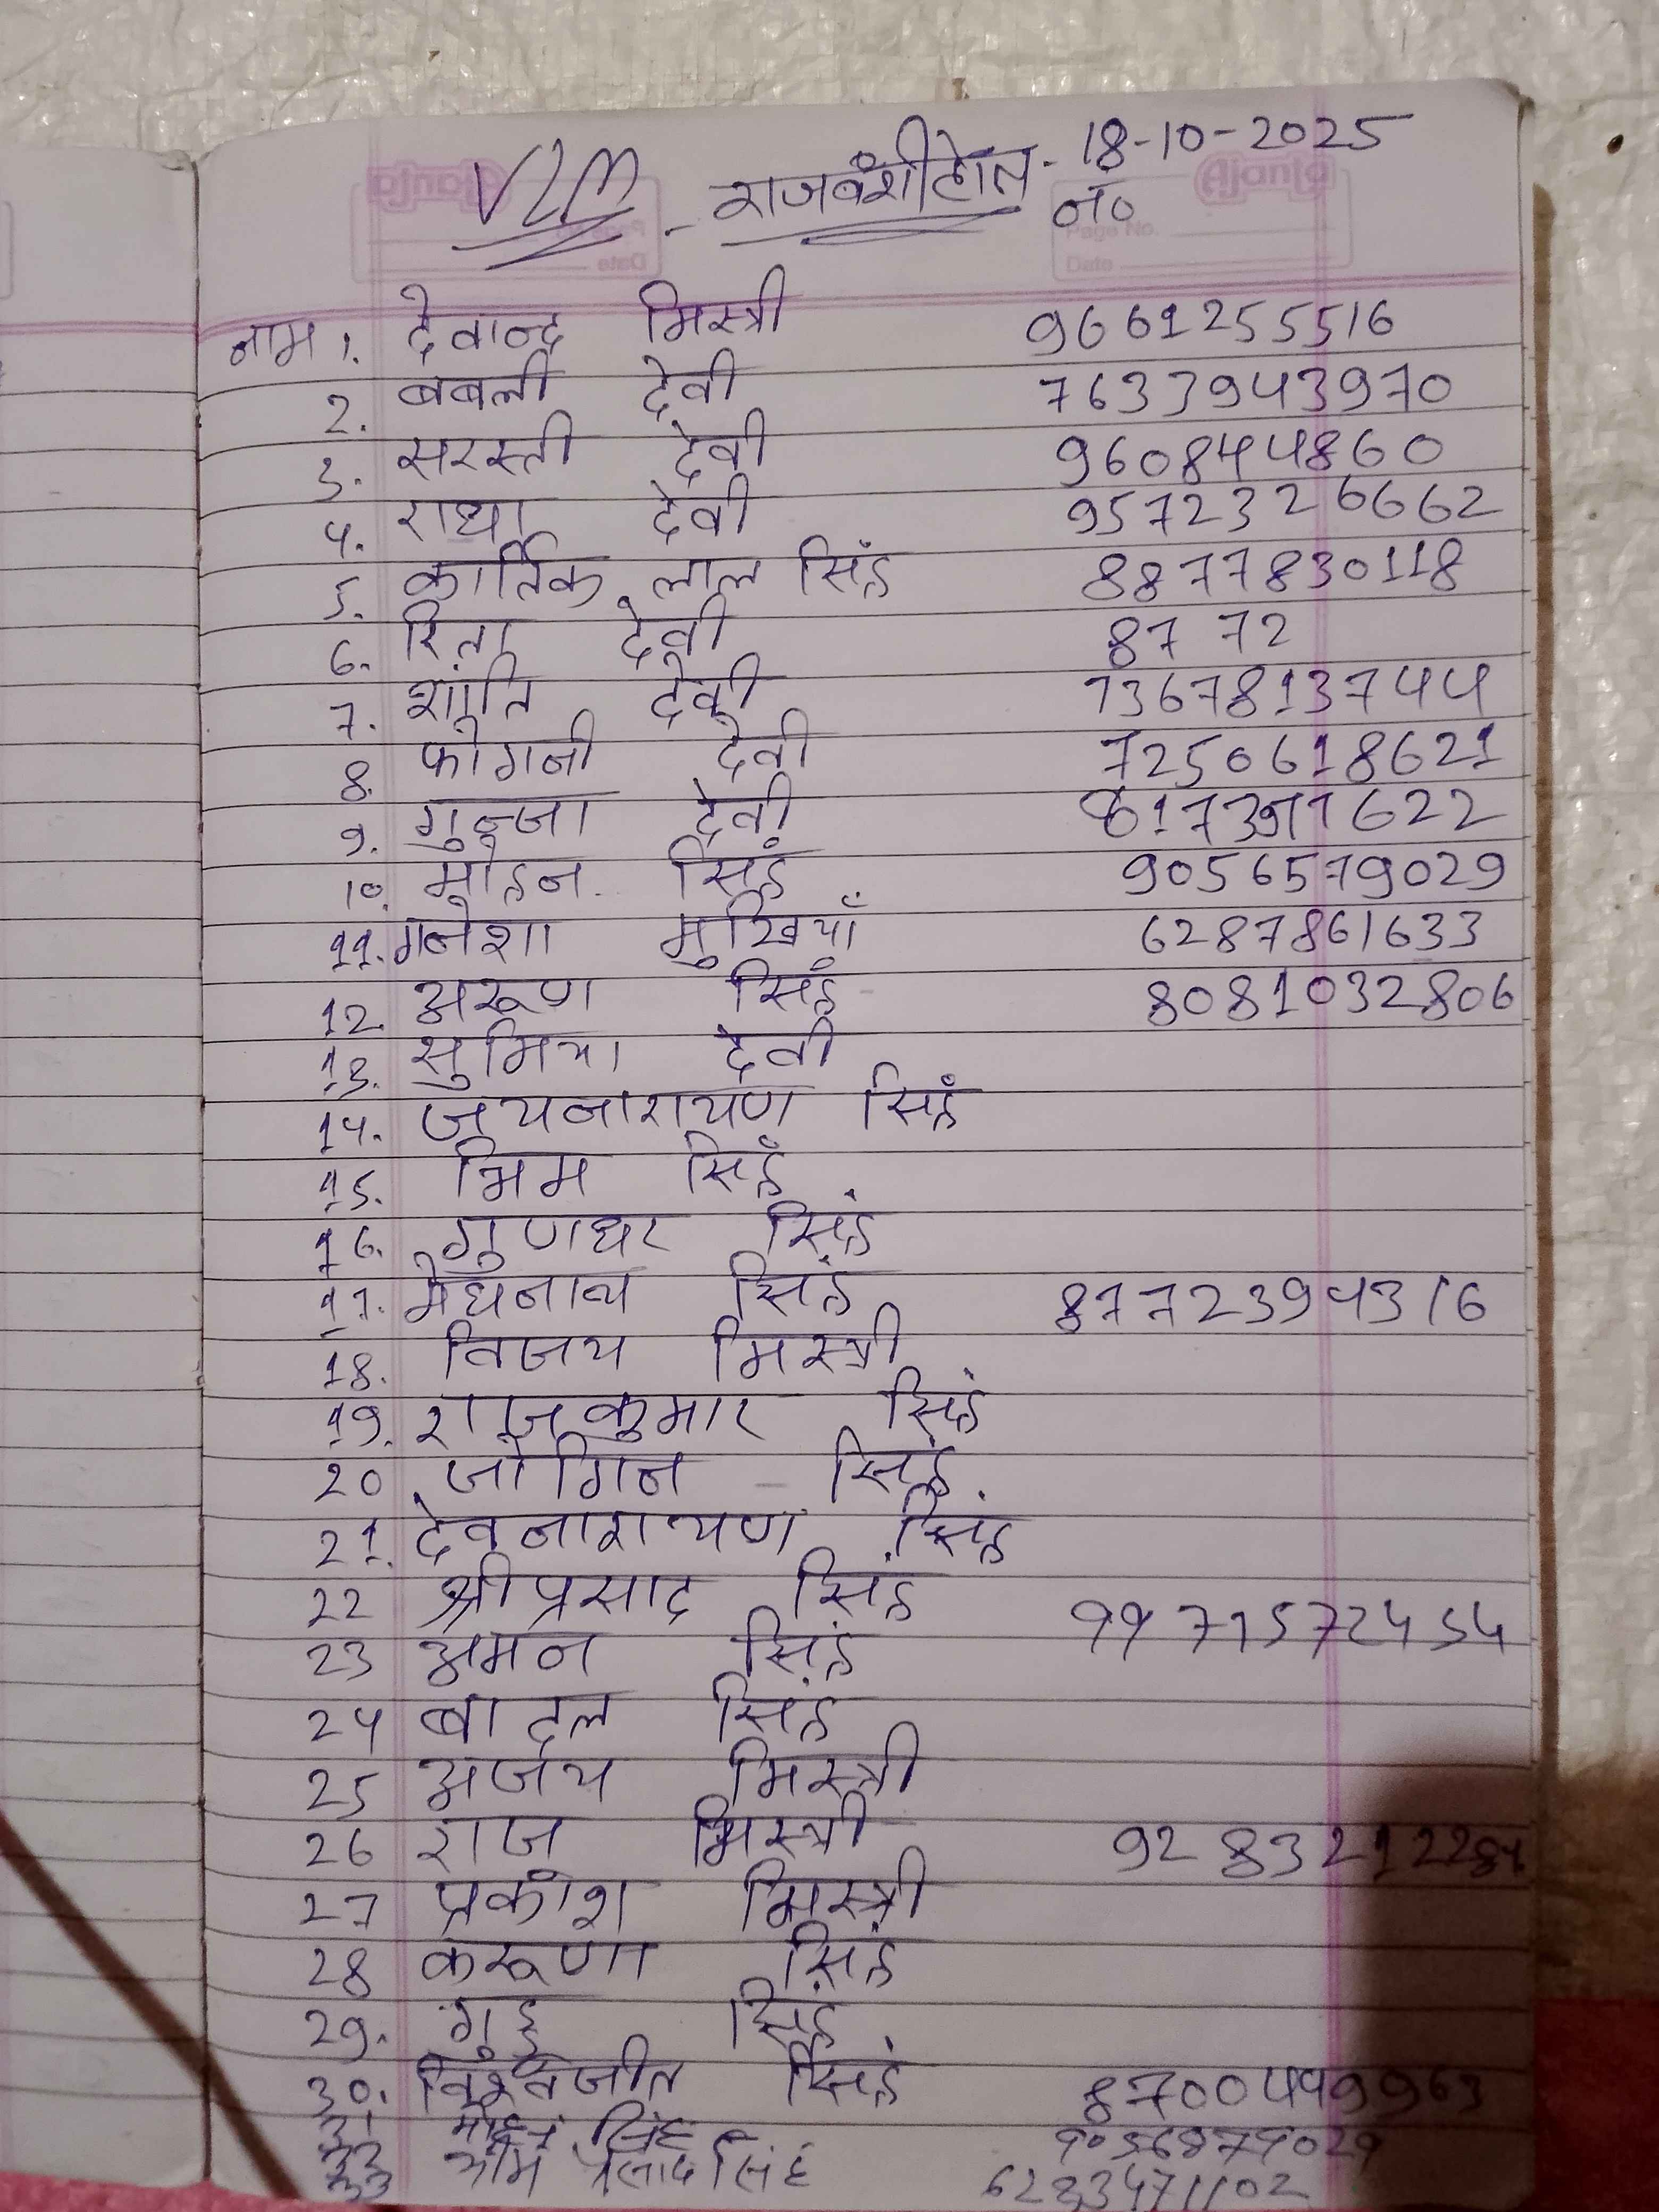 VLM - राजवंशीटोल - 18-10-2025
नं०
Ajanta
Page No.
Date
नाम 1. देवान्द्र मिस्त्री 9661255516
2. बबली देवी 7633943970
3. सरस्ती देवी 9608444860
4. राधा देवी 9572326662
5. कार्तिक लाल सिंह 8877830118
6. रिता देवी 87 72
7. शांति देवी 7367813744
8. फोगनी देवी 7250618621
9. गुन्जा देवी
10. मोहन सिंह 9056579029
11. गनेशा मुखियाँ 6287861633
12. अरूण सिंह 8081032806
13. सुमित्रा देवी
14. जयनारायण सिंह
15. भिम सिंह
16. गुणधर सिंह
17. मेघनाथ सिंह 87723994316
18. विजय मिस्त्री
19. राजकुमार सिंह
20 जोगिन सिंह
21. देवनारायण सिंह
22 श्रीप्रसाद सिंह
23 अमन सिंह 99 71572454
24 बादल सिंह
25 अजय मिस्त्री
26 राज मिस्त्री 92 83212284
27 प्रकाश मिस्त्री
28 करूणा सिंह
29. गुड्डू सिंह
30. विश्वजीत सिंह 8700449963
31 मोहन सिंह 9056879029
33 प्रसाद सिंह 6283471102